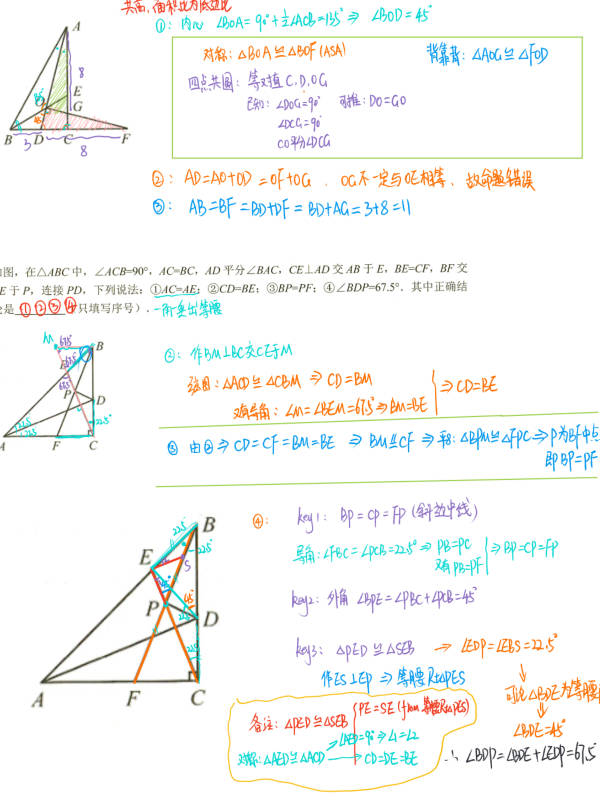 共高,面积比为底边比
①: 内心 ∠BOA=90°+½∠ACB=135° ⇒ ∠BOD=45°
对称: △BOA≌△BOF(ASA) 背靠背: △AOG≌△FOD
四点共圆: 等对补 C,D,O,G
已知: ∠DOG=90° 可推: DO=GO
∠DCG=90°
CO平分∠DCG
②: AD=AO+OD=OF+OG. OG不一定与OE相等、故命题错误
③: AB=BF=BD+DF=BD+AG=3+8=11
A
8
E
G
B
D
C
F
3
8
如图,在△ABC中,∠ACB=90°,AC=BC,AD平分∠BAC,CE⊥AD交AB于E,BE=CF,BF交
E于P,连接PD,下列说法:①AC=AE;②CD=BE;③BP=PF;④∠BDP=67.5°.其中正确结
论是①②③④(只填写序号).
M
67.5°
B
P
D
A
F
C
22.5°
②: 作BM⊥BC交CE于M
弦图: △ACD≌△CBM ⇒ CD=BM
对角导角: ∠M=∠BEM=67.5°⇒BM=BE
⇒CD=BE
③ 由②⇒CD=CF=BM=BE ⇒ BM≝CF ⇒ 平8: △BPM≌△FPC⇒P为BF中点
即BP=PF
④: key1: BP=CP=FP (斜边中线)
导角: ∠FBC=∠PCB=22.5°⇒PB=PC
又有PB=PF
⇒BP=CP=FP
key2: 外角 ∠BPE=∠PBC+∠PCB=45°
key3: △PED≌△SEB → ∠EDP=∠EBS=22.5°
作ES⊥EP ⇒等腰Rt△PES
B
22.5°
22.5°
E
S
P
45°
D
A
F
C
备注: △PED≌△SEB
PE=SE (from 等腰Rt△PES)
∠AED=90°⇒∠1=∠2
对称: △AED≌△ACD → CD=DE=BE
可说△BDE为等腰
∠BDE=45°
∴ ∠BDP=∠BDE+∠EDP=67.5°